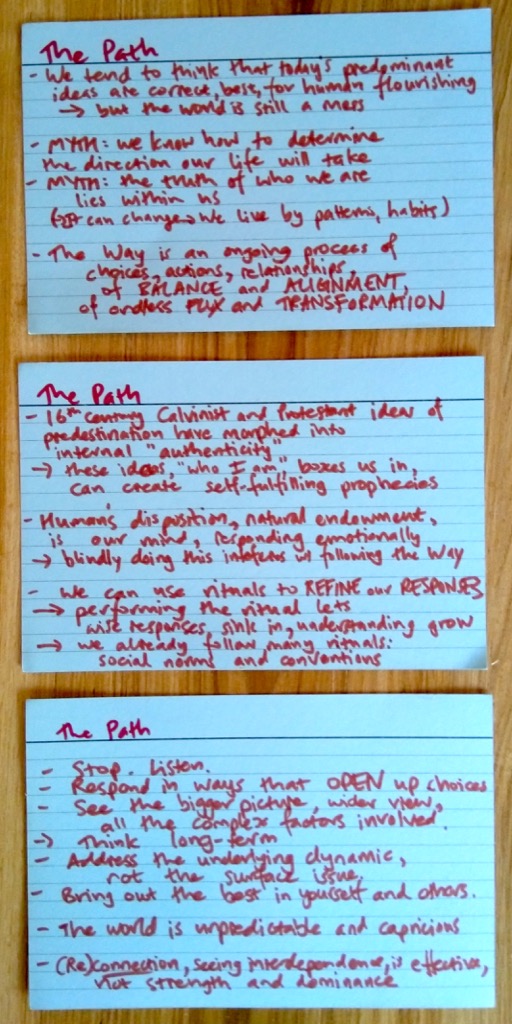 The Path
- We tend to think that today's predominant
ideas are correct, best, for human flourishing
→ but the world is still a mess
- MYTH: we know how to determine
the direction our life will take
- MYTH: the truth of who we are
lies within us
(→ It can change → We live by patterns, habits)
- The Way is an ongoing process of
choices, actions, relationships,
of BALANCE and ALIGNMENT,
of endless FLUX and TRANSFORMATION
The Path
- 16th century Calvinist and Protestant ideas of
predestination have morphed into
internal "authenticity"
→ these ideas, "who I am", boxes us in,
can create self-fulfilling prophecies
- Human's disposition, natural endowment,
is our mind, responding emotionally
→ blindly doing this interferes w/ following the Way
- We can use rituals to REFINE our RESPONSES
→ performing the ritual lets
wise responses sink in, understanding grow
→ we already follow many rituals:
social norms and conventions
The Path
- Stop. Listen.
- Respond in ways that OPEN up choices
- See the bigger picture, wider view,
all the complex factors involved.
→ Think long-term
- Address the underlying dynamic,
not the surface issue.
- Bring out the best in yourself and others.
- The world is unpredictable and capricious
- (Re)connection, seeing interdependence, is effective,
not strength and dominance